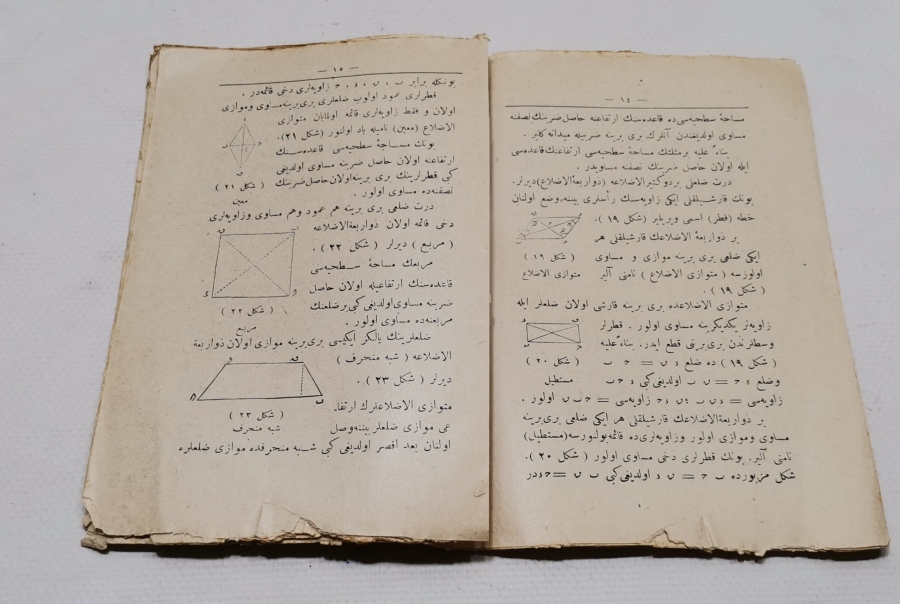 — ١٤ —
مساحهٔ سطحیه‌سی ده قاعده‌سنك ارتفاعنه حاصل ضربنك نصفنه
مساوی اولدیغندن آنلرك بری برینه ضربیله میدانه کلیر .
بناءً علیه بر مثلثك مساحهٔ سطحیه‌سی ارتفاعنك قاعده‌سی
ایله اولان حاصل ضربنك نصفنه مساویدر .
درت ضلعلی بر ذو کثیر الاضلاعه (ذو اربعة الاضلاع) دیرلر .
بونك قارشیلقلی ایکی زاویه‌سنك رأسلری بیننه وضع اولنان
خطه (قطر) اسمی ویریلیر (شکل ١٩) .
بر ذو اربعة الاضلاعك قارشیلقلی هر
ایکی ضلعی بری برینه موازی و مساوی
( شکل ١٩ )
اولورسه ( متوازی الاضلاع ) نامنی آلیر
متوازی الاضلاع
( شکل ١٩ ) .
متوازی الاضلاعده بری برینه قارشی اولان ضلعلر ایله
زاویه‌لر یکدیکرینه مساوی اولور . قطرلر
وسطلرندن بری برینی قطع ایدر. بناءً علیه
( شکل ١٩ ) ده ضلع ء ں = ح ب
( شکل ٢٠ )
وضلع ء ح = ں ب اولدیغی کبی ء ح ب
مستطیل
زاویه‌سی = ء ں ب ؛ ں ء ح زاویه‌سی = ح ب ں اولور .
بر ذو اربعة الاضلاعك قارشیلقلی هر ایکی ضلعی بری برینه
مساوی وموازی اولور وزاویه‌لری ده قائمه بولنورسه (مستطیل)
نامنی آلیر. بونك قطرلری دخی مساوی اولور ( شکل ٢٠ ) .
شکل مزبورده ب ح = ں ء اولدیغی کبی ب ں = ح ء در
— ١٥ —
بونکله برابر ب ، ں ، ء ، ح زاویه‌لری دخی قائمه‌در .
قطرلری عمود اولوب ضلعلری بری برینه مساوی وموازی
اولان و فقط زاویه‌لری قائمه اولمایان متوازی
الاضلاع (معین) نامیله یاد اولنور (شکل ٢١) .
بونك مساحهٔ سطحیه‌سی قاعده‌سنك
ارتفاعنه اولان حاصل ضربنه مساوی اولدیغی
کبی قطرلرینك بری برینه اولان حاصل ضربنك
( شکل ٢١ )
نصفنه ده مساوی اولور .
معین
درت ضلعی بری برینه هم عمود وهم مساوی وزاویه‌لری
دخی قائمه اولان ذو اربعة الاضلاعه
( مربع ) دیرلر ( شکل ٢٢ ) .
مربعك مساحهٔ سطحیه‌سی
قاعده‌سنك ارتفاعیله اولان حاصل
ضربنه مساوی اولدیغی کبی بر ضلعنك
( شکل ٢٢ )
مربعنه ده مساوی اولور .
مربع
ضلعلرینك یالکز ایکیسی بری برینه موازی اولان ذو اربعة
الاضلاعه ( شبه منحرف )
دیرلر ( شکل ٢٣ ) .
متوازی الاضلاعلرك ارتفا-
( شکل ٢٣ )
عی موازی ضلعلر بیننه وصل
شبه منحرف
اولنان بعد اقصر اولدیغی کبی شبه منحرفده موازی ضلعلره